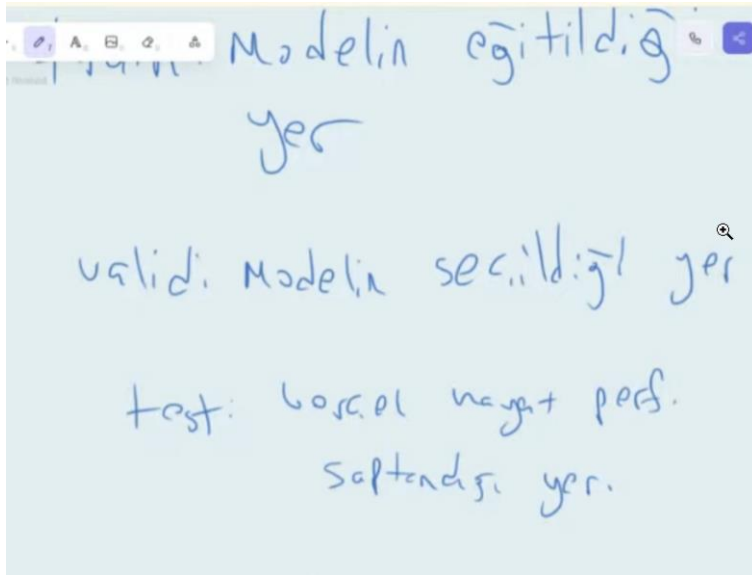 Modelin eğitildiğ
yer
valid: Modelin seçildiği yer
test: hayat perf.
saptandığı yer.